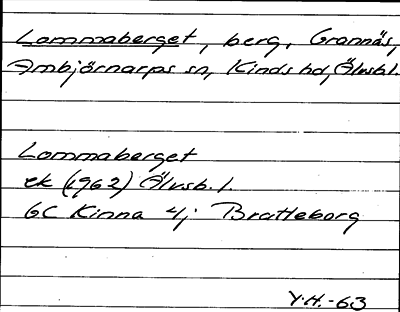 Lommaberget, berg, Grannäs,
Ambjörnarps sn, Kinds hd, Älvsb.l.
Lommaberget
ek (1962) Älvsb. l.
6C Kinna 4j Bratteborg
Y.H.-63